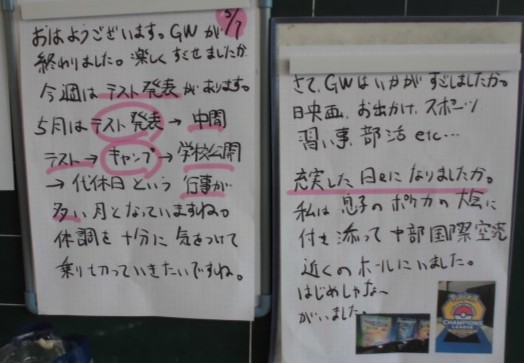 5/7
おはようございます。GWが
終わりました。楽しくすごせましたか
今週はテスト発表があります。
5月はテスト発表→中間
テスト→キャンプ→学校公開
→代休日という行事が
多い月となっていますね。
体調を十分に気をつけて
乗り切っていきたいですね。
さて、GWはいかがすごしましたか。
映画、お出かけ、スポーツ
習い事、部活etc…
充実した日々になりましたか。
私は息子のポケカの大会に
付き添って中部国際空港
近くのホールにいました。
はじめしゃちょ〜
がいました。
Pokémon
CHAMPIONS
LEAGUE